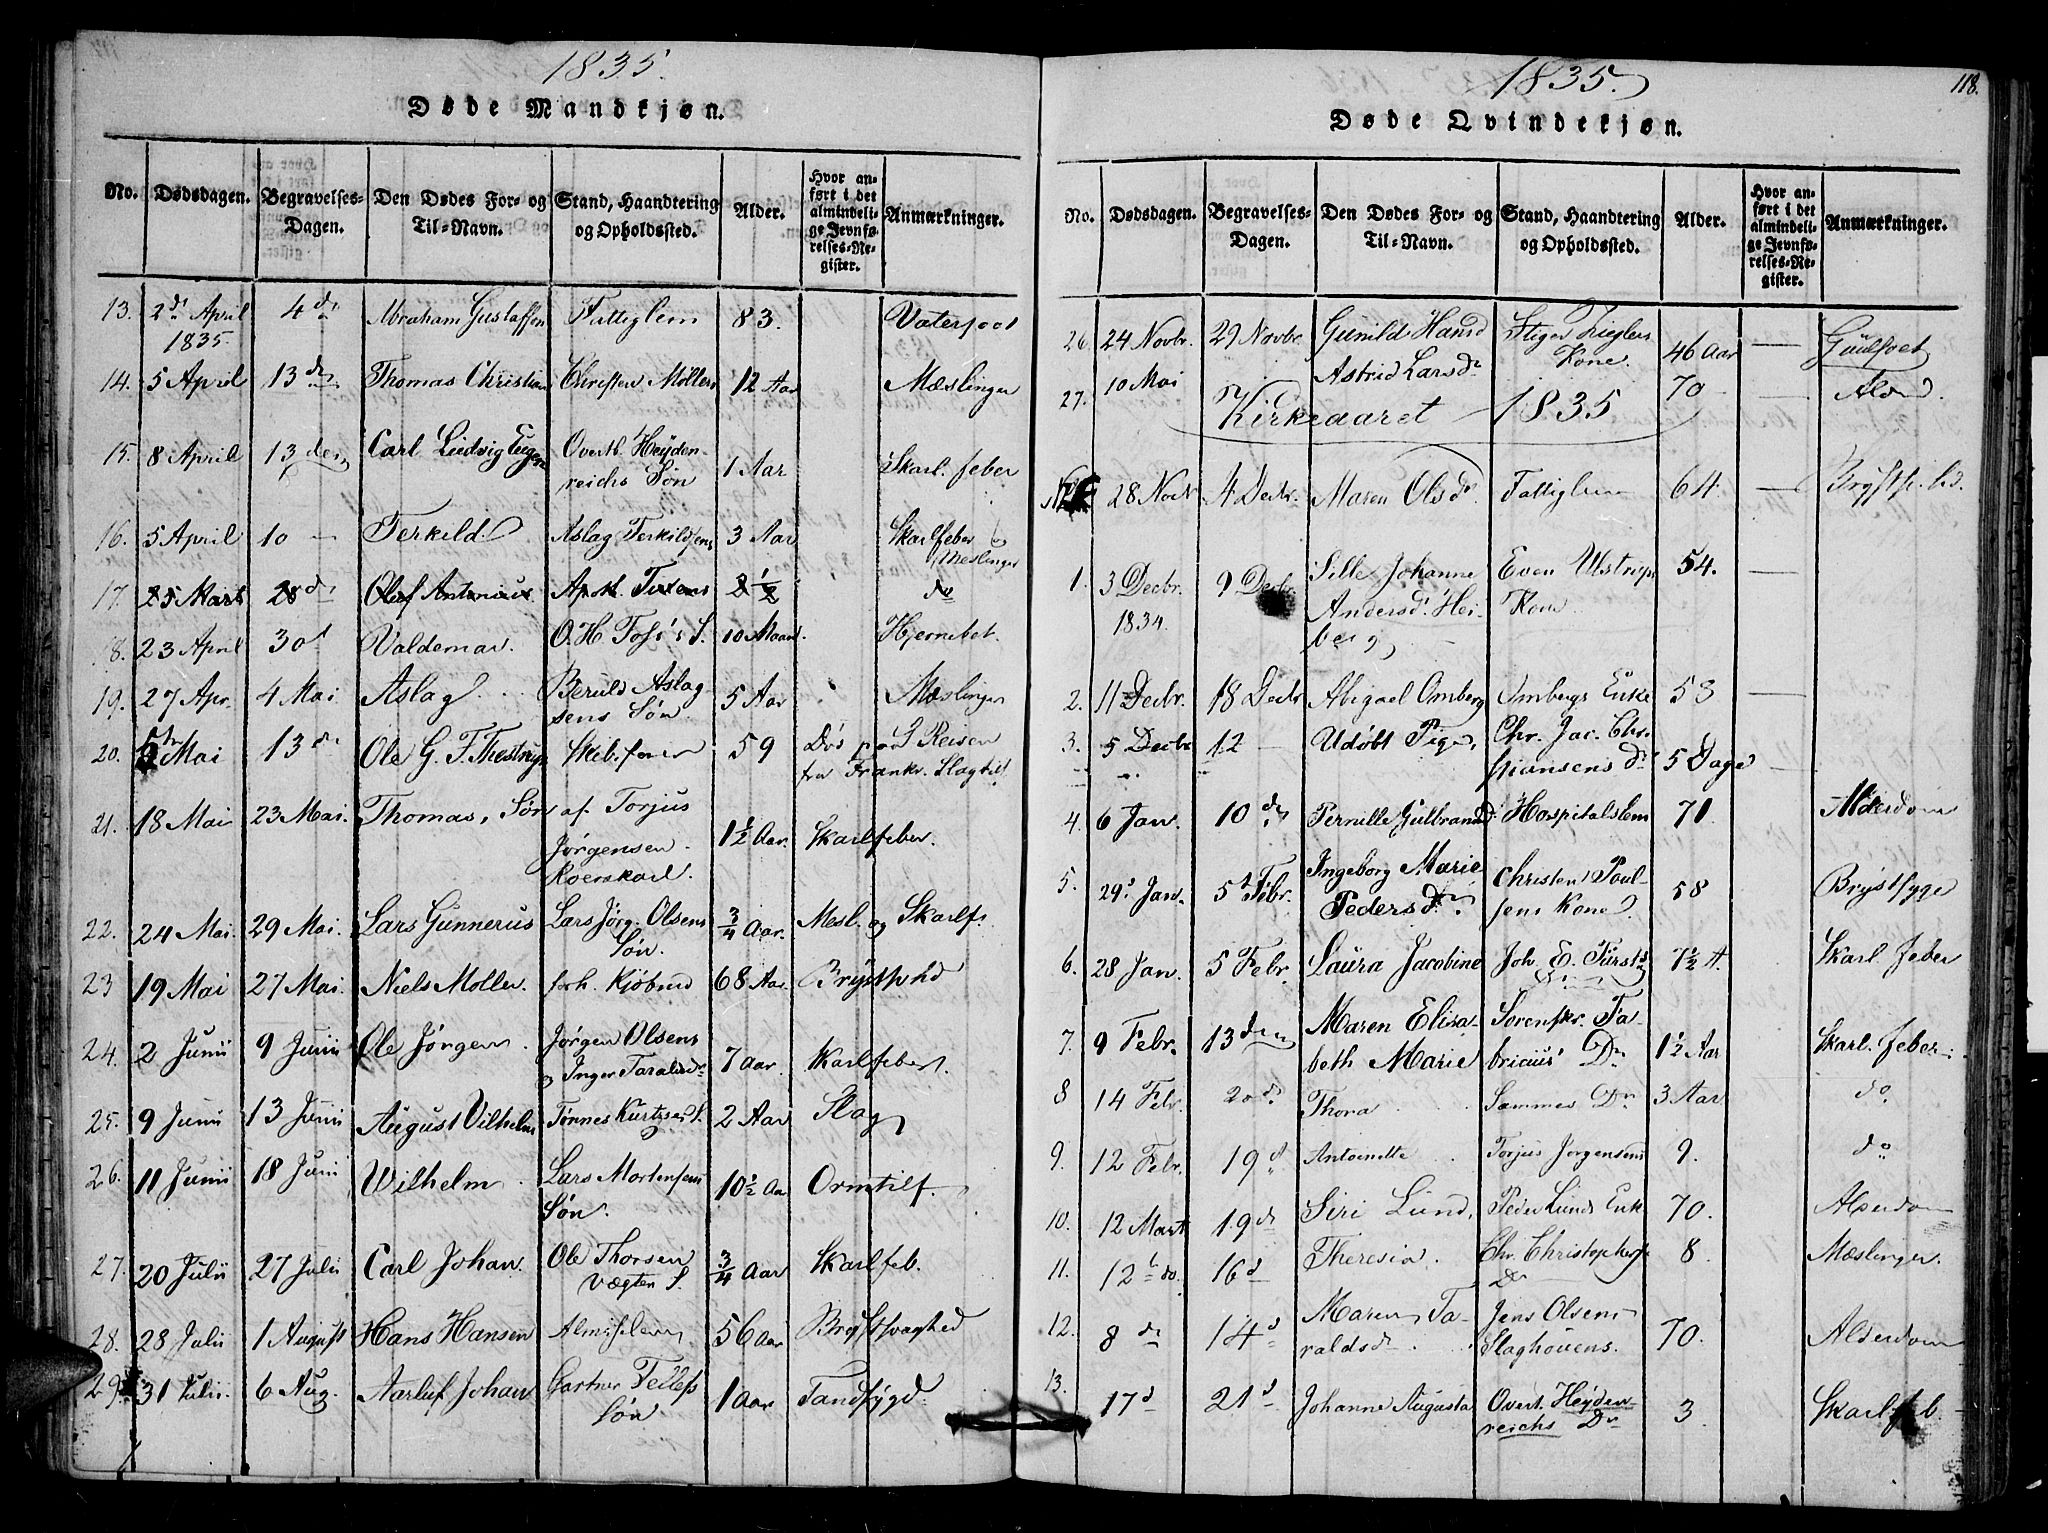 1835.
Døde Mandkjøn.
No. Dødsdagen. Begravelses-Dagen. Den Dødes For- og Til-Navn. Stand, Haandtering og Opholdssted. Alder. Hvor anført i det almindelige Jevnførelses-Register. Anmærkninger.
13. 2d April 1835 4de Abraham Gustaffen Fattiglem 83. Vatersoot
14. 5 April 13de Thomas Christian Christen Møllers 12 Aar Mæslinger
15. 8 April 13den Carl Ludvig Eugen Overtl. Heyden-
reichs Søn 1 Aar Skarl. feber
16. 5 April 10 — Terkild Aslag Terkildsens 3 Aar Skarlfeber
Meslinger
17. 25 Marts 28d Oluf Antonius Apoth. Tuxens 2 1/2 do
18. 23 April 30d Valdemar. O. H. Foss's S. 10 Maan. Hjernebet.
19. 27 Apr. 4 Mai Aslag Beruld Aslag-
sens Søn. 5 Aar Mæslinger
20. 5te Mai 13de Ole G. F. Thestrup Skibsfører 59 Døs paa Reisen
fra Frankr. Slagtilf.
21. 18 Mai 23 Mai. Thomas, Søn af Torjus
Jørgensen
Roerskarl. 1 1/2 Aar. Skarlfeber.
22. 24 Mai. 29 Mai. Lars Gunnerus Lars Jørg. Olsens
Søn. 3/4 Aar. Mesl. og Skarlf.
23 19 Mai 27 Mai. Niels Møller. forh. Kjøbmd 68 Aar. Brystsvhd
24. 2 Junii 9 Junii Ole Jørgen. Jørgen Olsens
og Inger Taraldsdr 7 Aar. Skarlfeber.
25. 9 Junii 13 Junii August Vilhelm Tønnes Kurtzes S. 2 Aar Slag
26. 11 Junii 18 Juni Wilhelm Lars Mortensens
Søn. 10 1/2 Aar Ormtilf.
27. 20 Julii 27 Julii Carl Johan. Ole Thorsen
Vægters S. 3/4 Aar Skarlfeb.
28. 28 Julii 1 August Hans Hansen Almisselem 56 Aar Brystsvaghed
29. 31 Julii. 6 Aug. Aarluf Johan Gartner Tellefs
Søn 1 Aar Tandsygd
118.
1835.
Døde Qvindekjøn.
No. Dødsdagen. Begravelses-Dagen. Den Dødes For- og Til-Navn. Stand, Haandtering og Opholdssted. Alder. Hvor anført i det almindelige Jevnførelses-Register. Anmærkninger.
26. 24 Novbr. 29 Novbr. Gunild Hansd Stiger Zieglers
Kone. 46 Aar — Guulsot
27. 10 Mai Astrid Larsdr 70 — Ald
Kirkeaaret 1835
28 Novb 4 Decbr. Maren Olsdr. Fattiglem 64. —
1. 3 Decbr. 1834. 9 Decbr. Sille Johanne
Andersdr. Hei-
berg Even Ulstrups
Kone 54. —
2. 11 Decbr. 18 Decbr Abigael Omberg Ombergs Enke 53 —
3. 5 Decbr 12 — Udøbt Pige, Chr. Jac. Chr-
stiansens Dr 5 Dage —
4. 6 Jan. 10de Pernille Gulbrandsd. Hospitalslem 71. Alderdom
5. 29d Jan. 5t Febr. Ingeborg Marie
Pedersdr. Christen Poul-
sens Kone. 58 Brystsyge
6. 28 Jan. 5 Febr. Laura Jacobine Joh. E. Fürsts
Dr 7 1/2 A. Skarl. feber
7. 9 Febr. 13den Maren Elisa-
beth Marie Sorenskr. Fa-
bricius' Dr 1 1/2 Aar Skarl. feber
8 14 Febr. 20d. Thora Sammes Dr 3 Aar do
9. 12 Febr. 19d Antoinette Torjus Jørgensens 9. do
10. 12 Marts 19d Siri Lund, Peder Lunds Enk 70. Alderdom
11. 12t do. 16d Theresia Chr. Christophers
Dr 8 Mæslinger.
12. 8de 14d Maren Ta-
raldsdr Jens Olsens
Slaghovens. 70. Alderdom
13. 17d 21d Johanne Augusta Overt. Heyden-
reichs Dr 3 Skarlfeb.